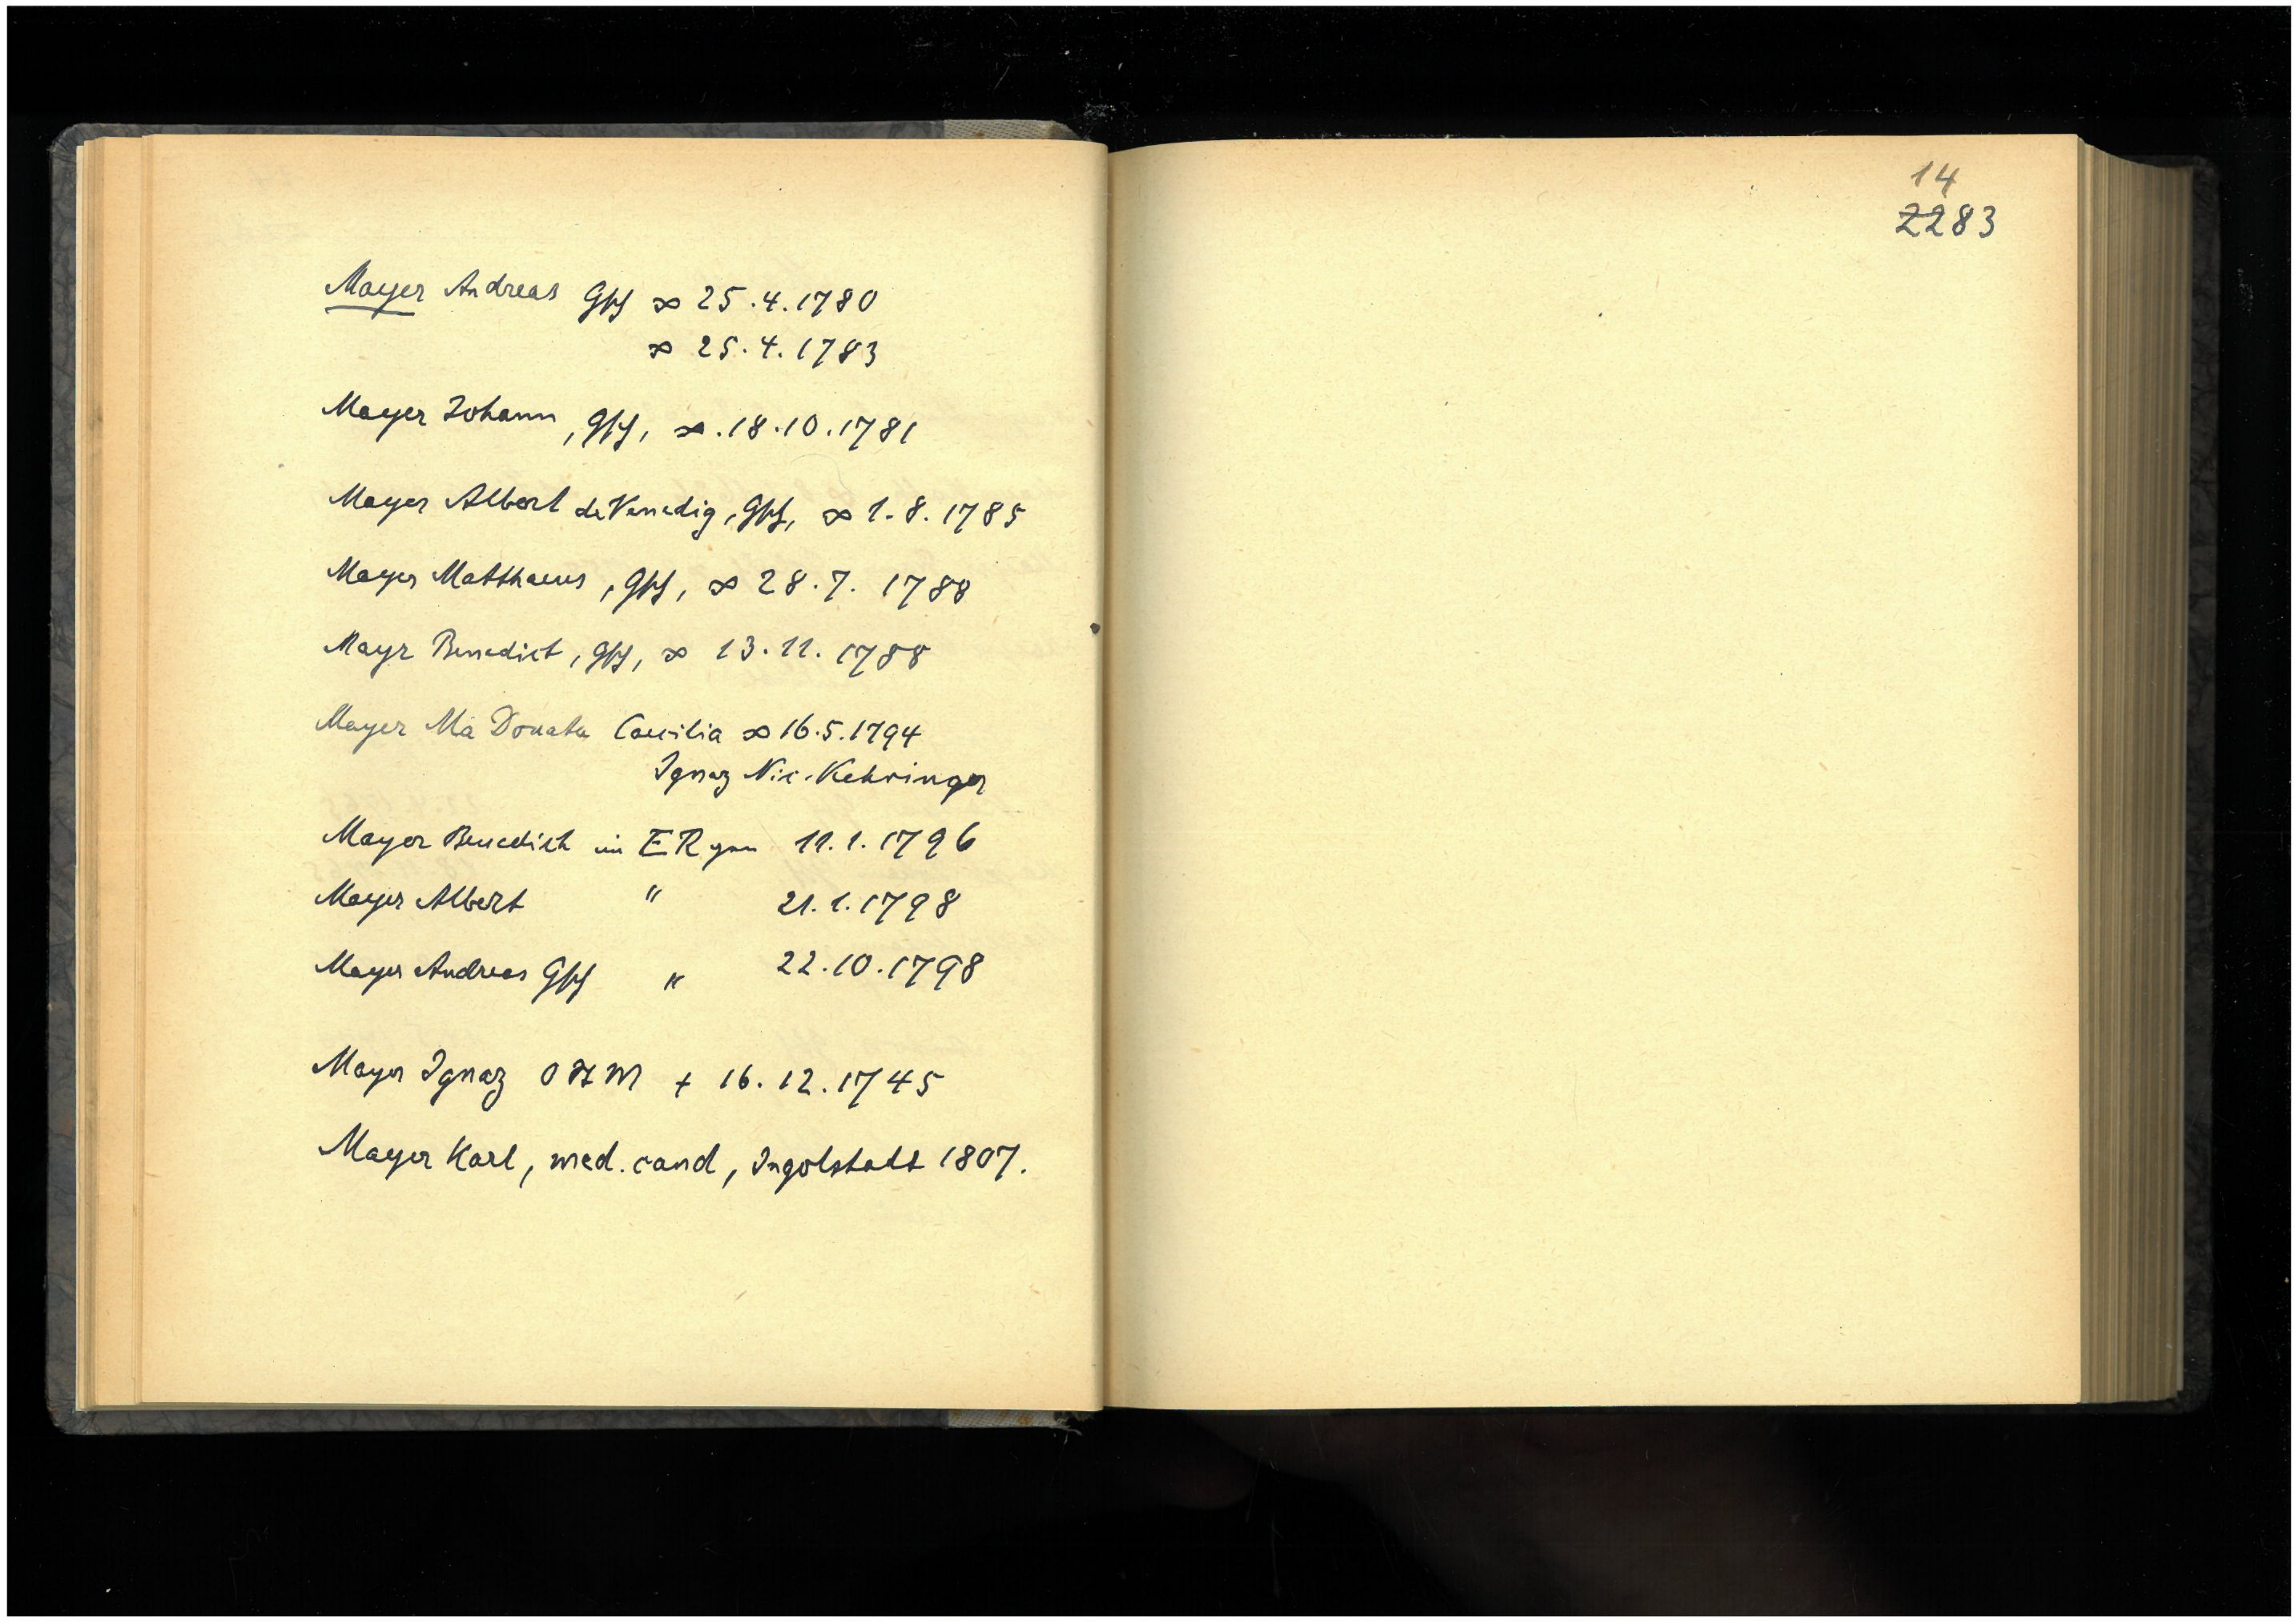 Mayer Andreas Gschf ∞ 25.4.1780
∞ 25.4.1783
Mayer Johann, Gschf, ∞.18.10.1781
Mayer Albert de Venedig, Gschf, ∞ 1.8.1785
Mayer Matthaeus, Gschf, ∞ 28.7.1788
Mayr Benedict, Gschf, ∞ 13.11.1788
Mayer Ma Donata Caecilia ∞ 16.5.1794
Ignaz Nic. Kehringer
Mayer Benedikt im ER 11.1.1796
Mayer Albert " 21.1.1798
Mayer Andreas Gschf " 22.10.1798
Mayer Ignaz + 16.12.1745
Mayer Karl, med. cand, Ingolstadt 1807.
14
2283